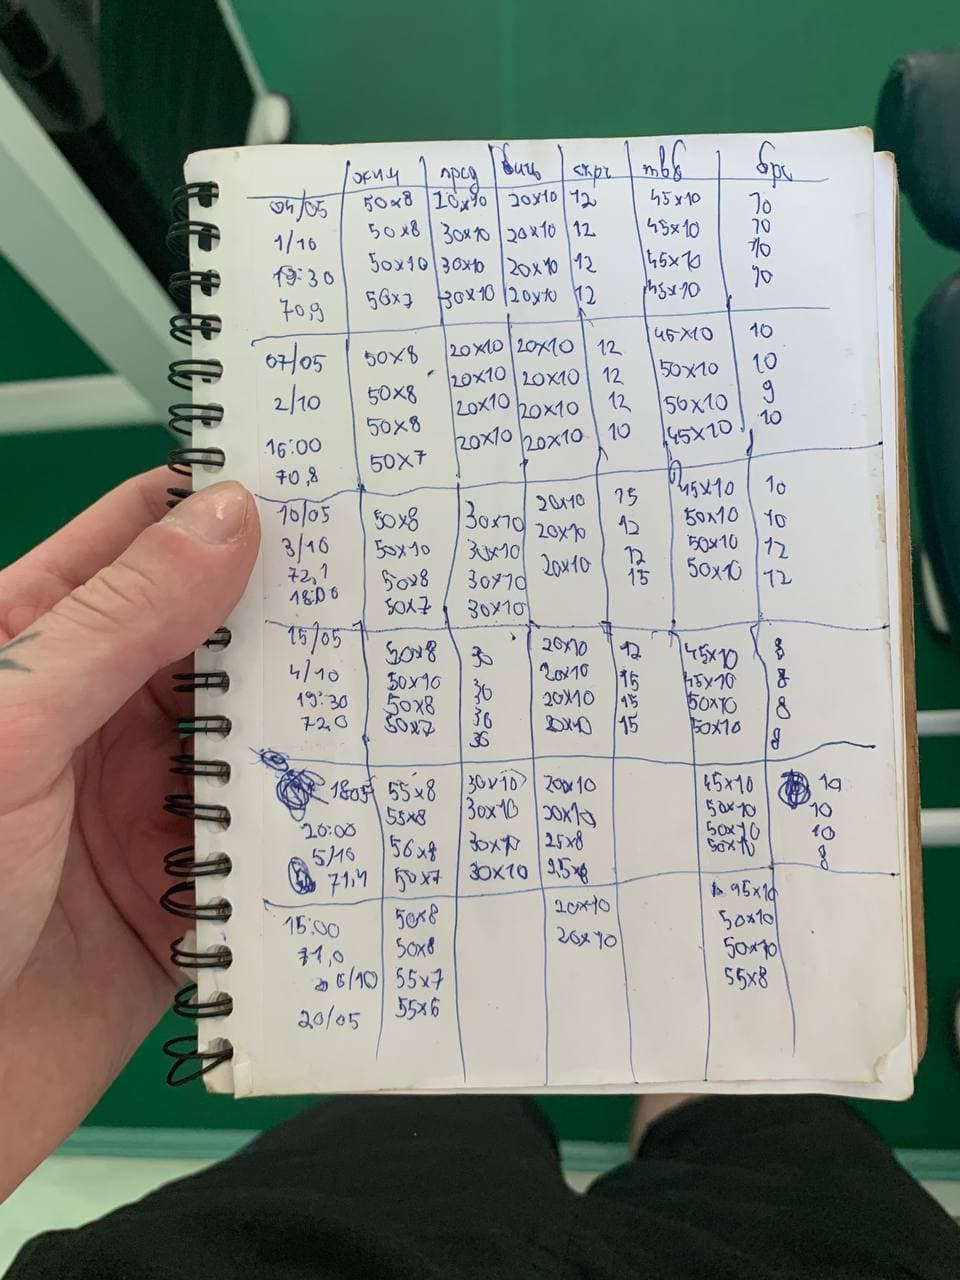 жим пред биц скрч
04/05 50x8 20x10 20x10 12 45x10 10
1/10 50x8 30x10 20x10 12 45x10 10
19:30 50x10 30x10 20x10 12 45x10 10
70,9 50x7 30x10 20x10 12 45x10 10
07/05 50x8 20x10 20x10 12 45x10 10
2/10 50x8 20x10 20x10 12 50x10 10
16:00 50x8 20x10 20x10 12 50x10 9
70,8 50x7 20x10 20x10 10 45x10 10
10/05 50x8 30x10 20x10 15 45x10 10
3/10 50x10 30x10 20x10 12 50x10 10
72,1 50x8 30x10 20x10 12 50x10 12
18:00 50x7 30x10 15 50x10 12
15/05 50x8 30 20x10 12 45x10 8
4/10 50x10 30 20x10 15 45x10 8
19:30 50x8 30 20x10 15 50x10 8
72,0 50x7 30 20x10 15 50x10 8
1805 55x8 30x10 20x10 45x10 10
20:00 55x8 30x10 20x10 50x10 10
5/10 50x8 30x10 25x8 50x10 10
71,4 50x7 30x10 25x8 50x10 8
15:00 50x8 20x10 45x10
71,0 50x8 20x10 50x10
6/10 55x7 50x10
20/05 55x6 55x8